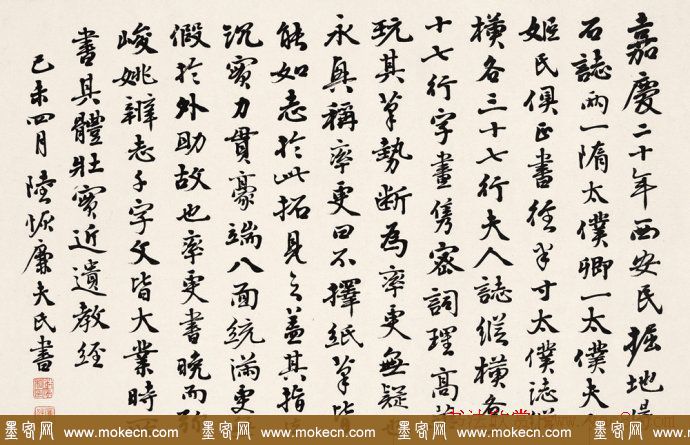 嘉慶二十年西安民掘地得
石誌兩一隋太僕卿一太僕夫人
姬氏俱正書徑半寸太僕誌縱
橫各三十七行夫人誌縱橫各
十七行字畫雋密詞理高
玩其筆勢斷為率更無疑也
永貞稱率更曰不擇紙筆皆
能如志於此拓見之蓋其指
沉實力貫豪端八面統滿更
假於外助故也率更書晚而
峻姚辯志千字文皆大業時
書其體壯實近遺教經
己未四月陸恢廉夫氏書
墨客网 www.mokecn.com 墨客网 www.mokecn.com 墨客网 www.mokecn.com